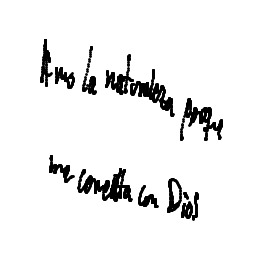 Amo la naturaleza porque
me conecta con Dios